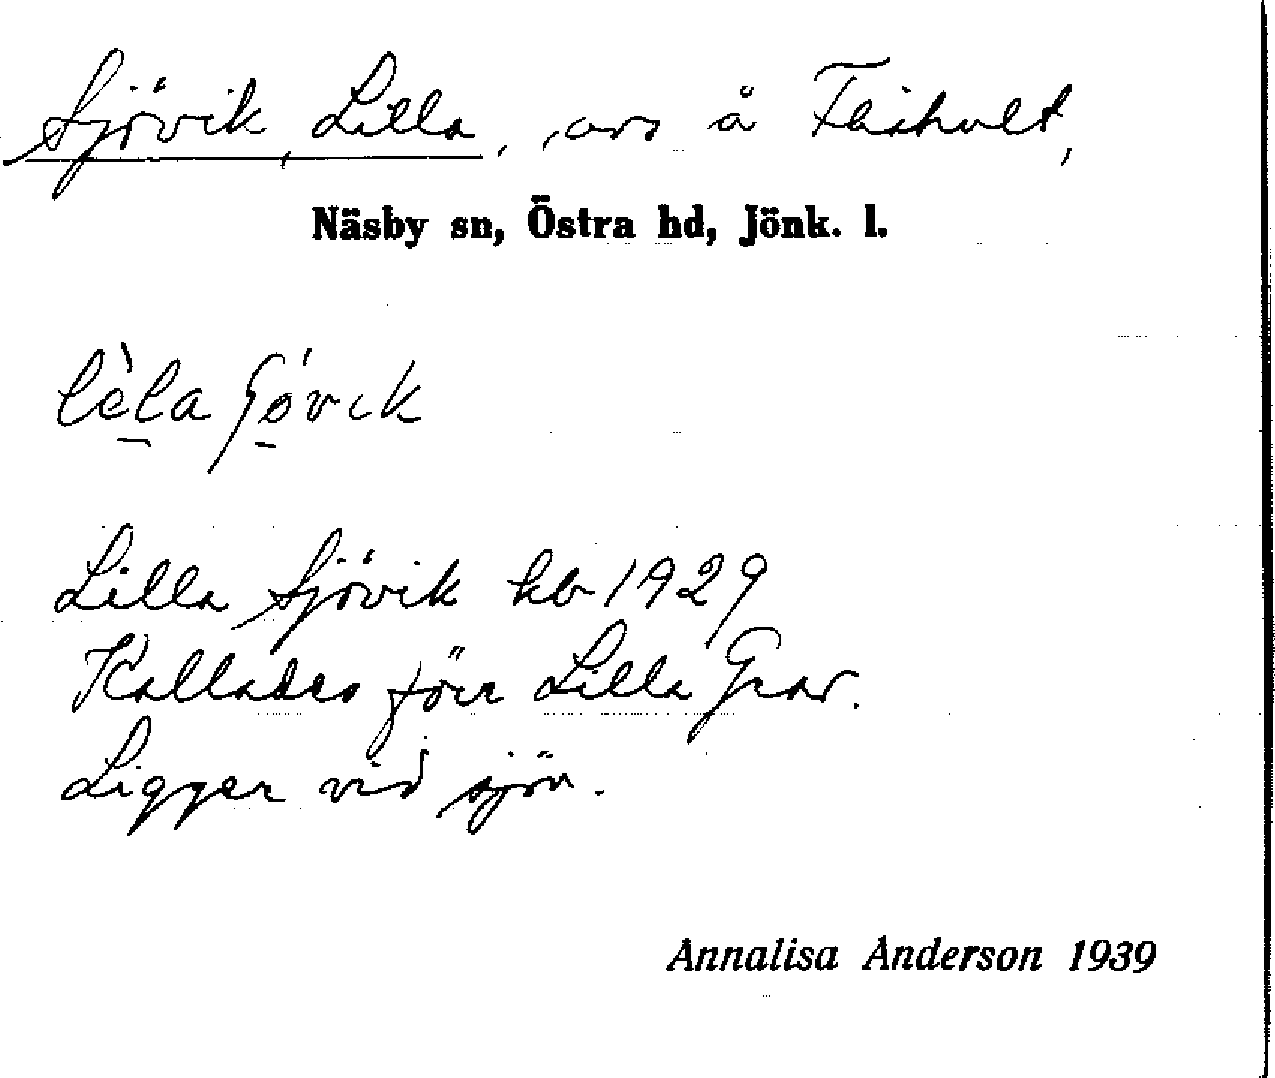 Sjövik, Lilla, avs å Flishult,
Näsby sn, Östra hd, Jönk. l.
lèla ʃö́vik
Lilla Sjövik kb 1929
Kallades förr Lilla Grav.
Ligger vid sjön.
Annalisa Anderson 1939